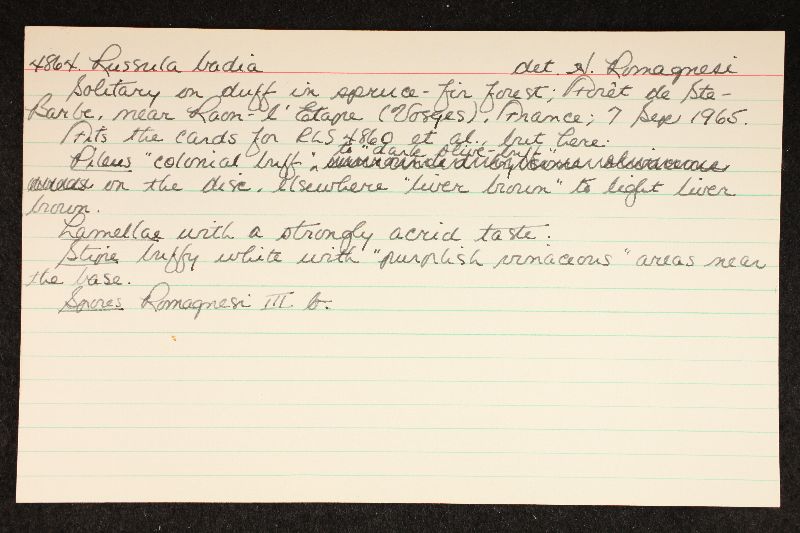 4864. Russula badia det. H. Romagnesi
Solitary on duff in spruce-fir forest; Forêt de Ste-
Barbe, near Raon-l'Etape (Vosges), France; 7 Sep 1965.
Fits the cards for RLS 4860 et al., but here:
Pileus "colonial buff", to "dark olive-buff"
on the disc. Elsewhere "liver brown" to light liver
brown.
Lamellae with a strongly acrid taste.
Stipe buffy white with "purplish vinaceous" areas near
the base.
Spores Romagnesi III. b.